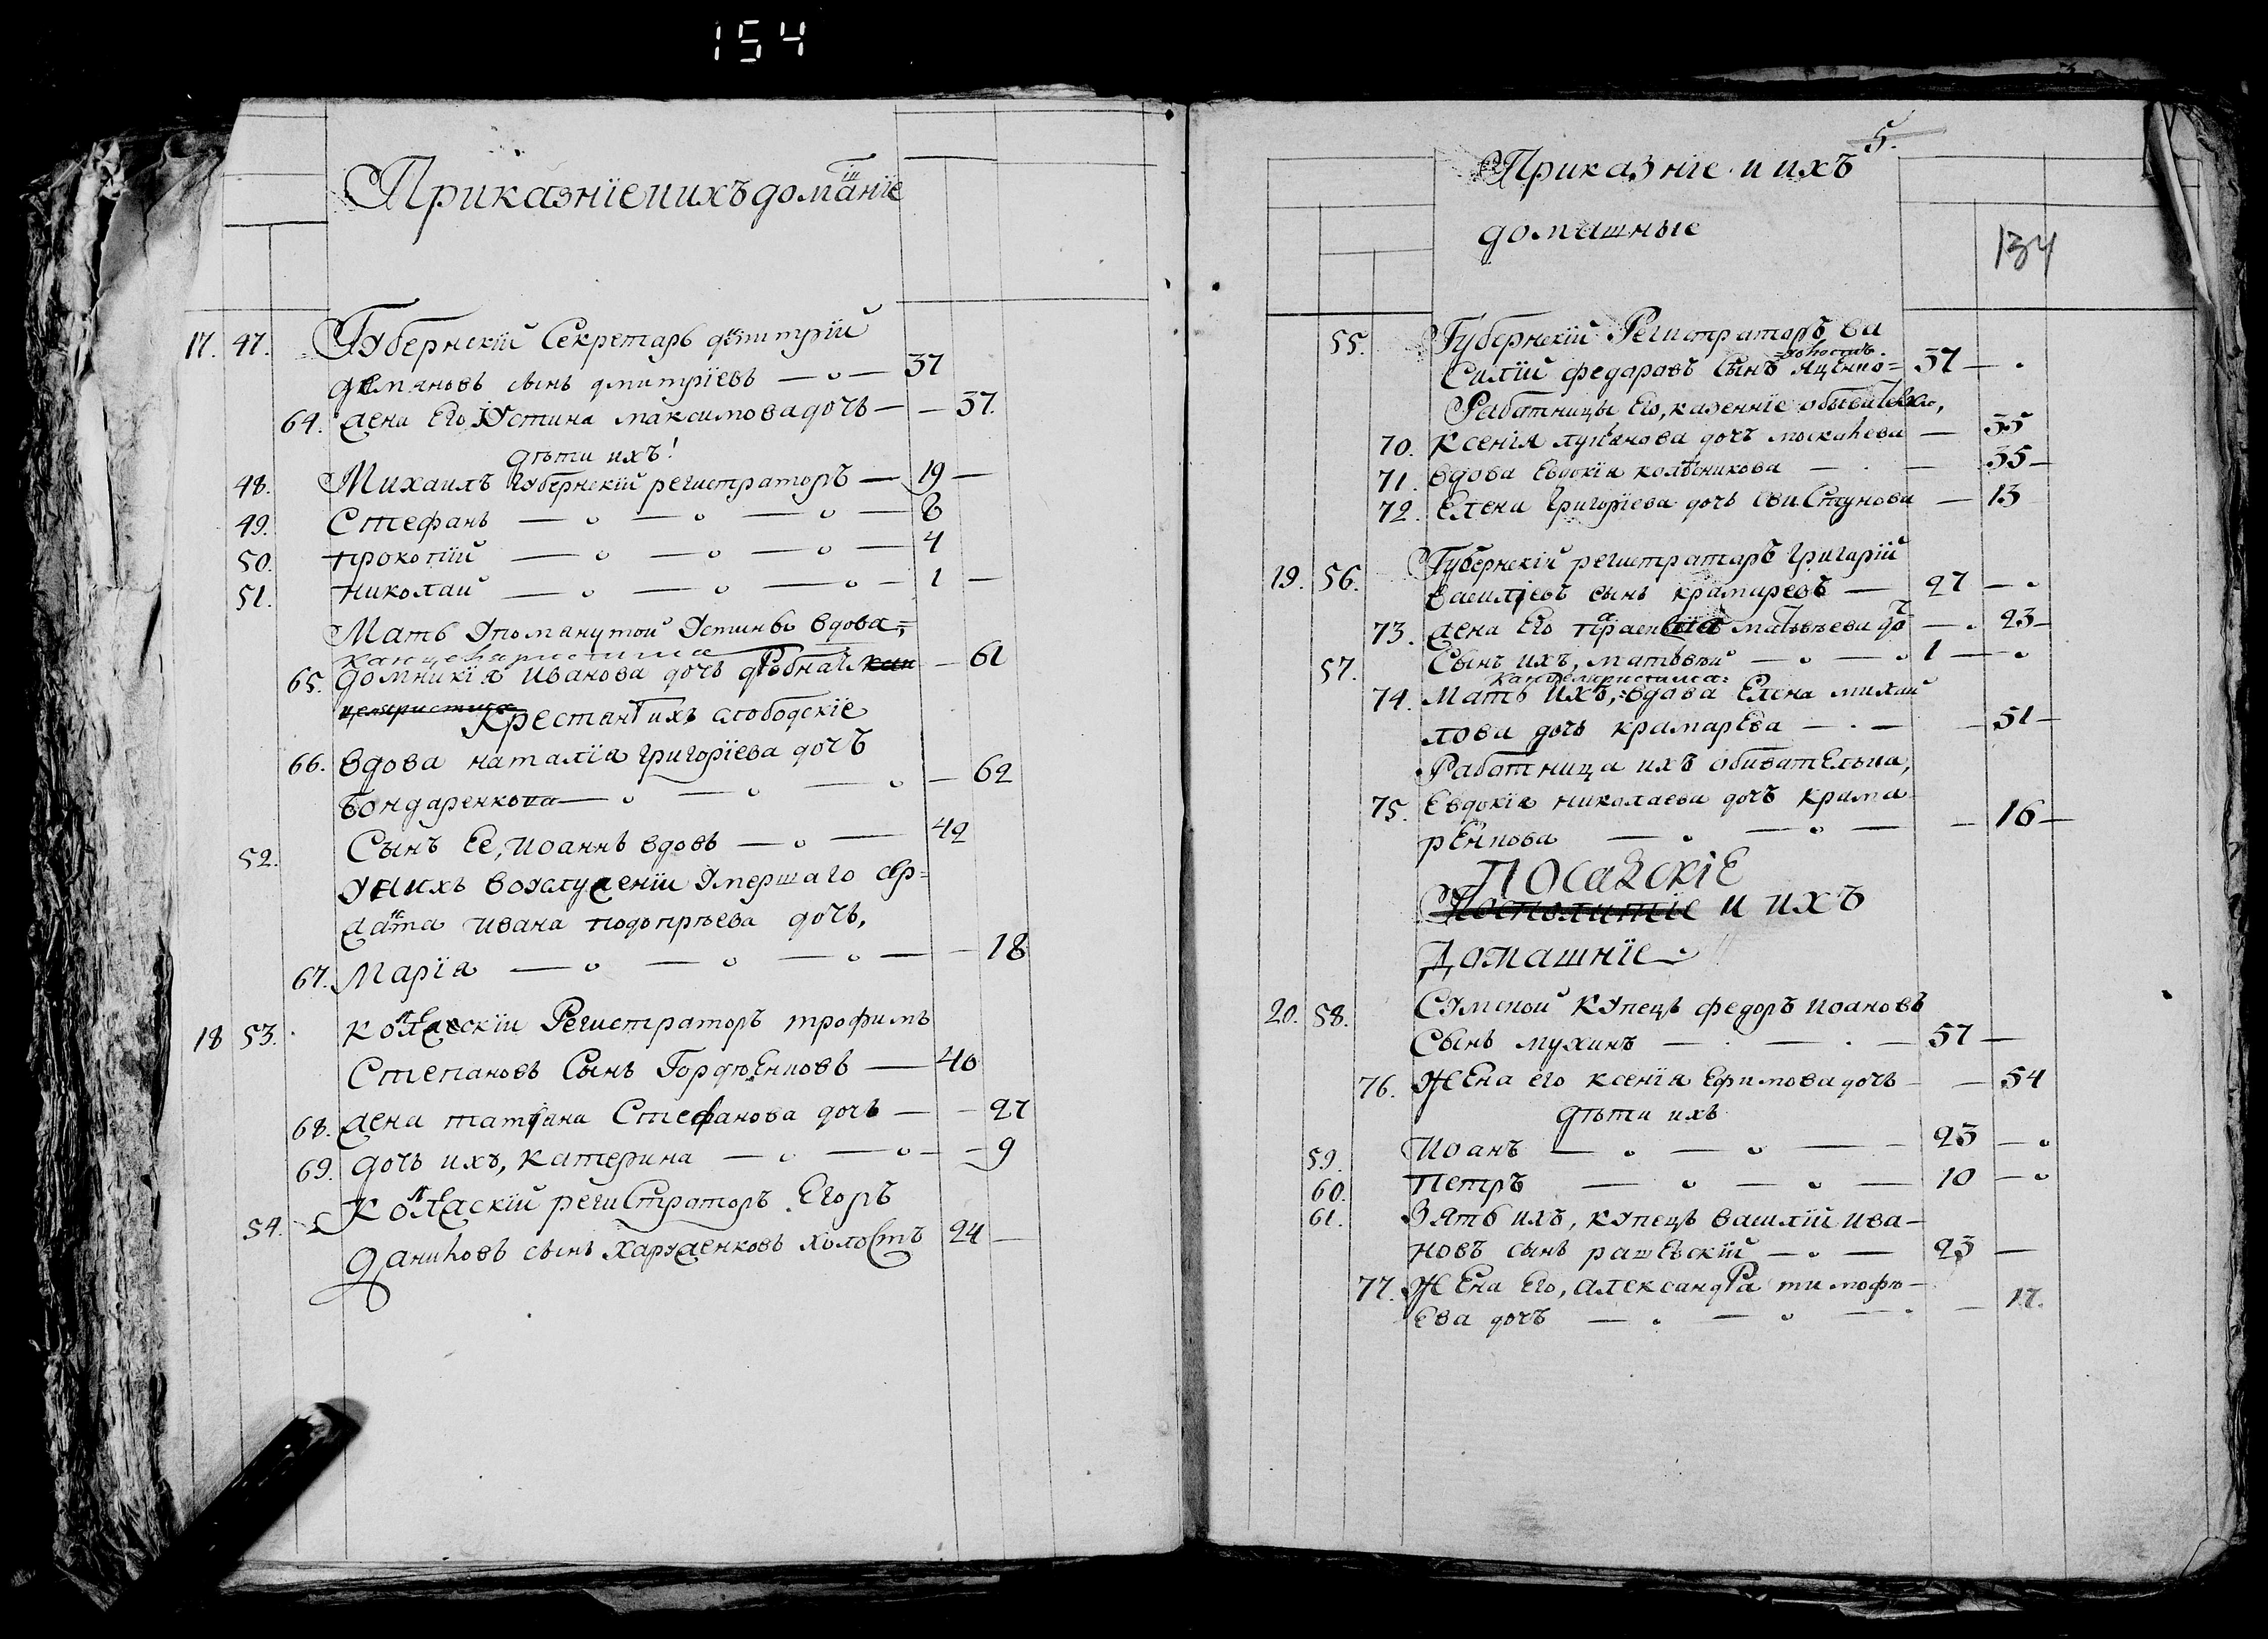 154
Приказнїе и ихъ домашнїе
17. 47. Губернскїй Секретарь дмитрїй
демяновъ сынъ дмитрїевъ — 37
64. жена Его Устина максимова дочь — — 37.
дѣти ихъ:
48. Михаилъ Губернскїй регистраторъ — 19 —
49. Стефанъ — 6
50. прокопїй — 4
51. николай — 1 —
Мать Упомянутой Устины вдова,=
канцеляристша
65. домникїя иванова дочь — 61
Крестянъ ихъ слободскїе
66. вдова наталїя григорїева дочъ
бондаренкова — 62
52. Сынъ Ее, иоаннъ вдовъ — 42
У нихъ вослуженїи Умершаго сер=
жанта ивана подопрѣева дочь,
67. Марїя — 18
18 53. колежскїи Регистраторъ трофимъ
Степановъ Сынъ Гордѣенковъ — 40
68. жена татїана Стефанова дочь — — 27
69. дочь ихъ, катерина — 9
54. колежскїй региСтраторъ Егоръ
даниловъ сынъ харженковъ холоСтъ 24 —
5.
Приказнїе и ихъ
домашные
134
55. Губернскїй Регистраторъ ва
холостъ
Силїй федоровъ Сынъ яценко= 37 —
Работницы Его, казеннїе обыватели,
70. Ксенїя лупанова дочъ москалева — 35
71. вдова Евдокїя колѣсникова — 35 —
72. Елена григорїева дочь свиСтунова — 13
Губернскїй регистраторъ григорїй
19. 56. василїевъ сынъ крамаревъ — 27 —
73. жена Его параскевїя матвѣева доч — 23 —
57. Сынъ ихъ, матвѣй — 1 —
канцеляристша:
74. Мать ихъ,=вдова Елена михаи
лова дочь крамарЕва — 51 —
Работница ихъ обивателька,
75. Евдокїя николаева дочъ крама
рЕнкова — 16 —
ПОСАДСКІЕ
Посполитїе и ихъ
Домашнїе
20. 58. Сумской купецъ федоръ иоановъ
Сынъ мухинъ — 57 —
76. ЖЕна его ксенїя Ефимова дочъ — — 54
дѣти ихъ
59. Иоанъ — 23 —
60. Петръ — 10 —
61. Зять ихъ, купецъ василїй ива-
новъ сынъ рашЕвскїй — 23 —
77. ЖЕна Его, АлександРа тимофѣ-
ева дочъ — 17.